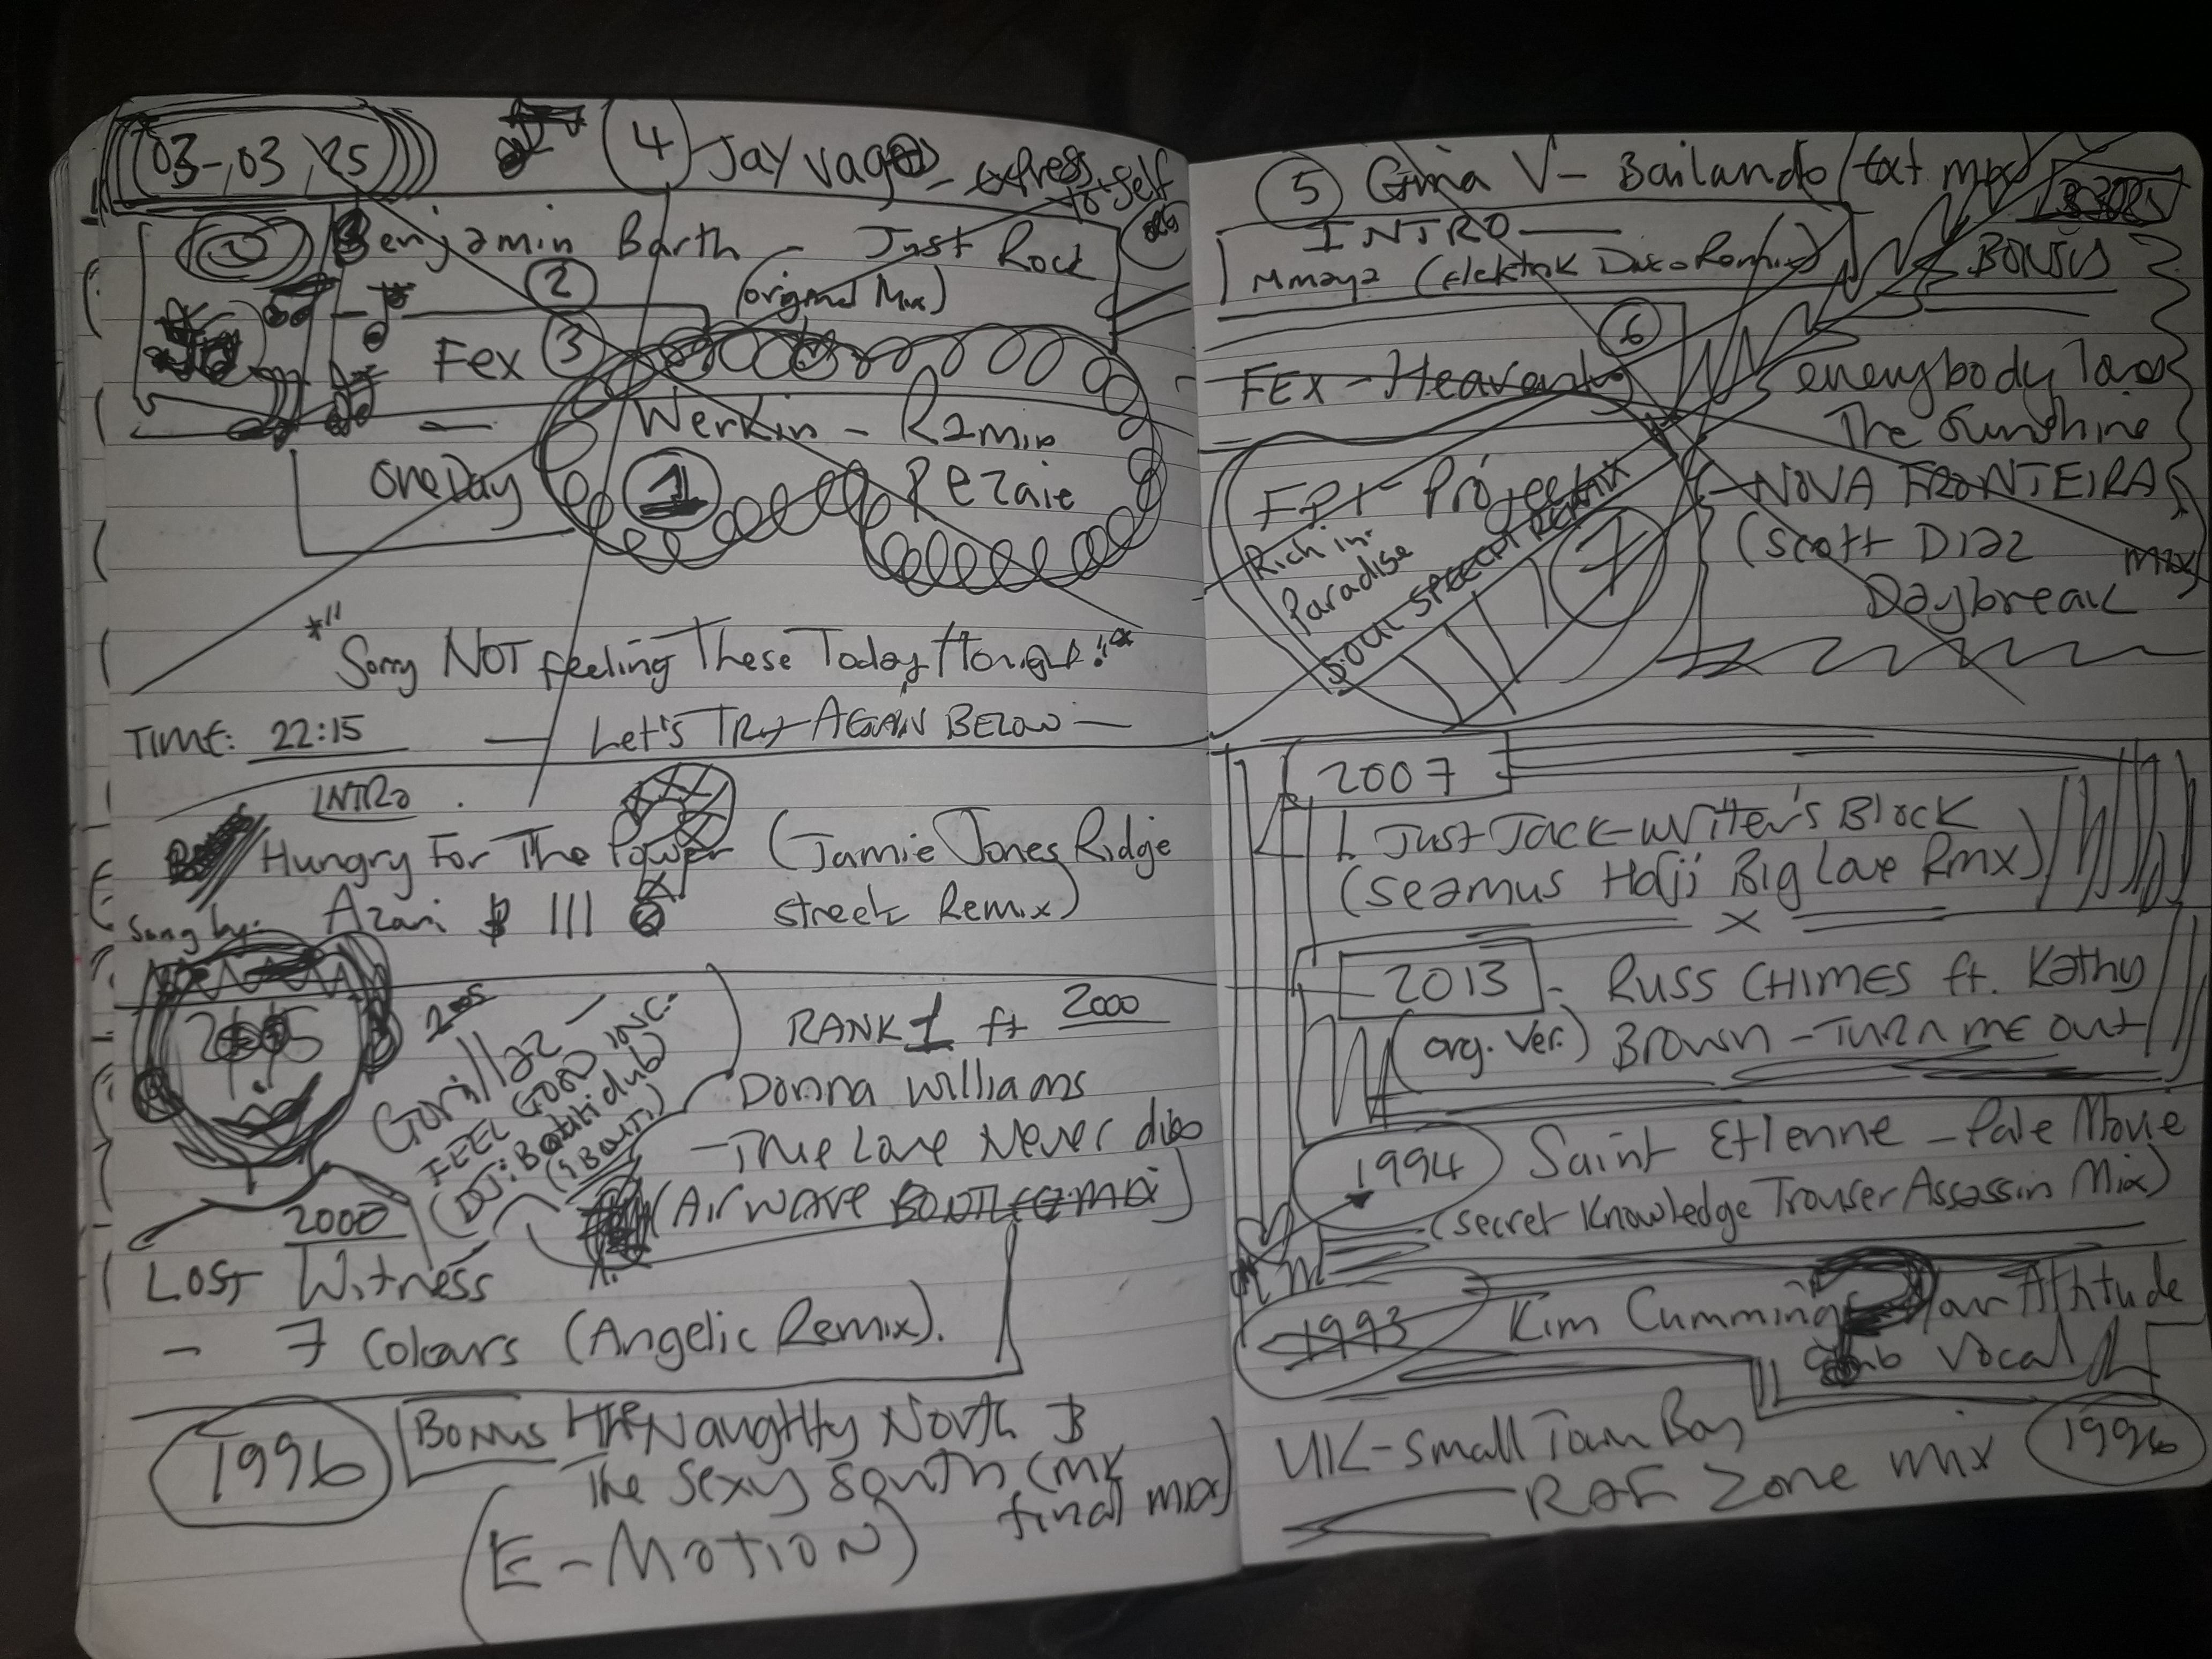 03-,03,25
4 Jay vagos - express to self
Benjamin Barth - Just Rock
2 (original Mix)
Fex 3
Werkin - Ramin
One Day 1 Rezaie
*"Sorry NOT feeling These Today/tonight!"*
TIME: 22:15 — Let's TRY AGAIN BELOW —
INTRO
Hungry For The Power (Jamie Jones Ridge
Sung by: Azari $ III street Remix)
2005
Gorillaz -
FEEL GOOD INC.
RANK 1 ft 2000
Donna Williams
- True Love Never dies
(Airwave
2000
LOST Witness
- 7 Colours (Angelic Remix).
1996 Bonus The Naughty North &
The Sexy South (MK
final mix)
(E-MOTION)
5 Gina V- Bailando (ext. mix)
INTRO
Mmaya (Elektrik Disco Remix)
6
FEX - Heavenly
FPI - Project
Rich in-
Paradise
SOUL SPEECH REMIX
7
BONUS
everybody loves
The Sunshine
- NOVA FRONTEIRA
(Scott Diaz
Daybreak mix)
2007
Just Jack - Writer's Block
(Seamus Haji Big Love Rmx)
x
2013 - RUSS CHIMES ft. Kathy
(org. Ver.) Brown - TURN ME OUT
1994 Saint Etienne - Pale Movie
(Secret Knowledge Trouser Assassin Mix)
1993 Kim Cummings Your Attitude
Club Vocal
UK - Small Town Boy
RAF Zone mix 1996